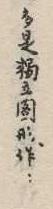 多是獨立圖形作：